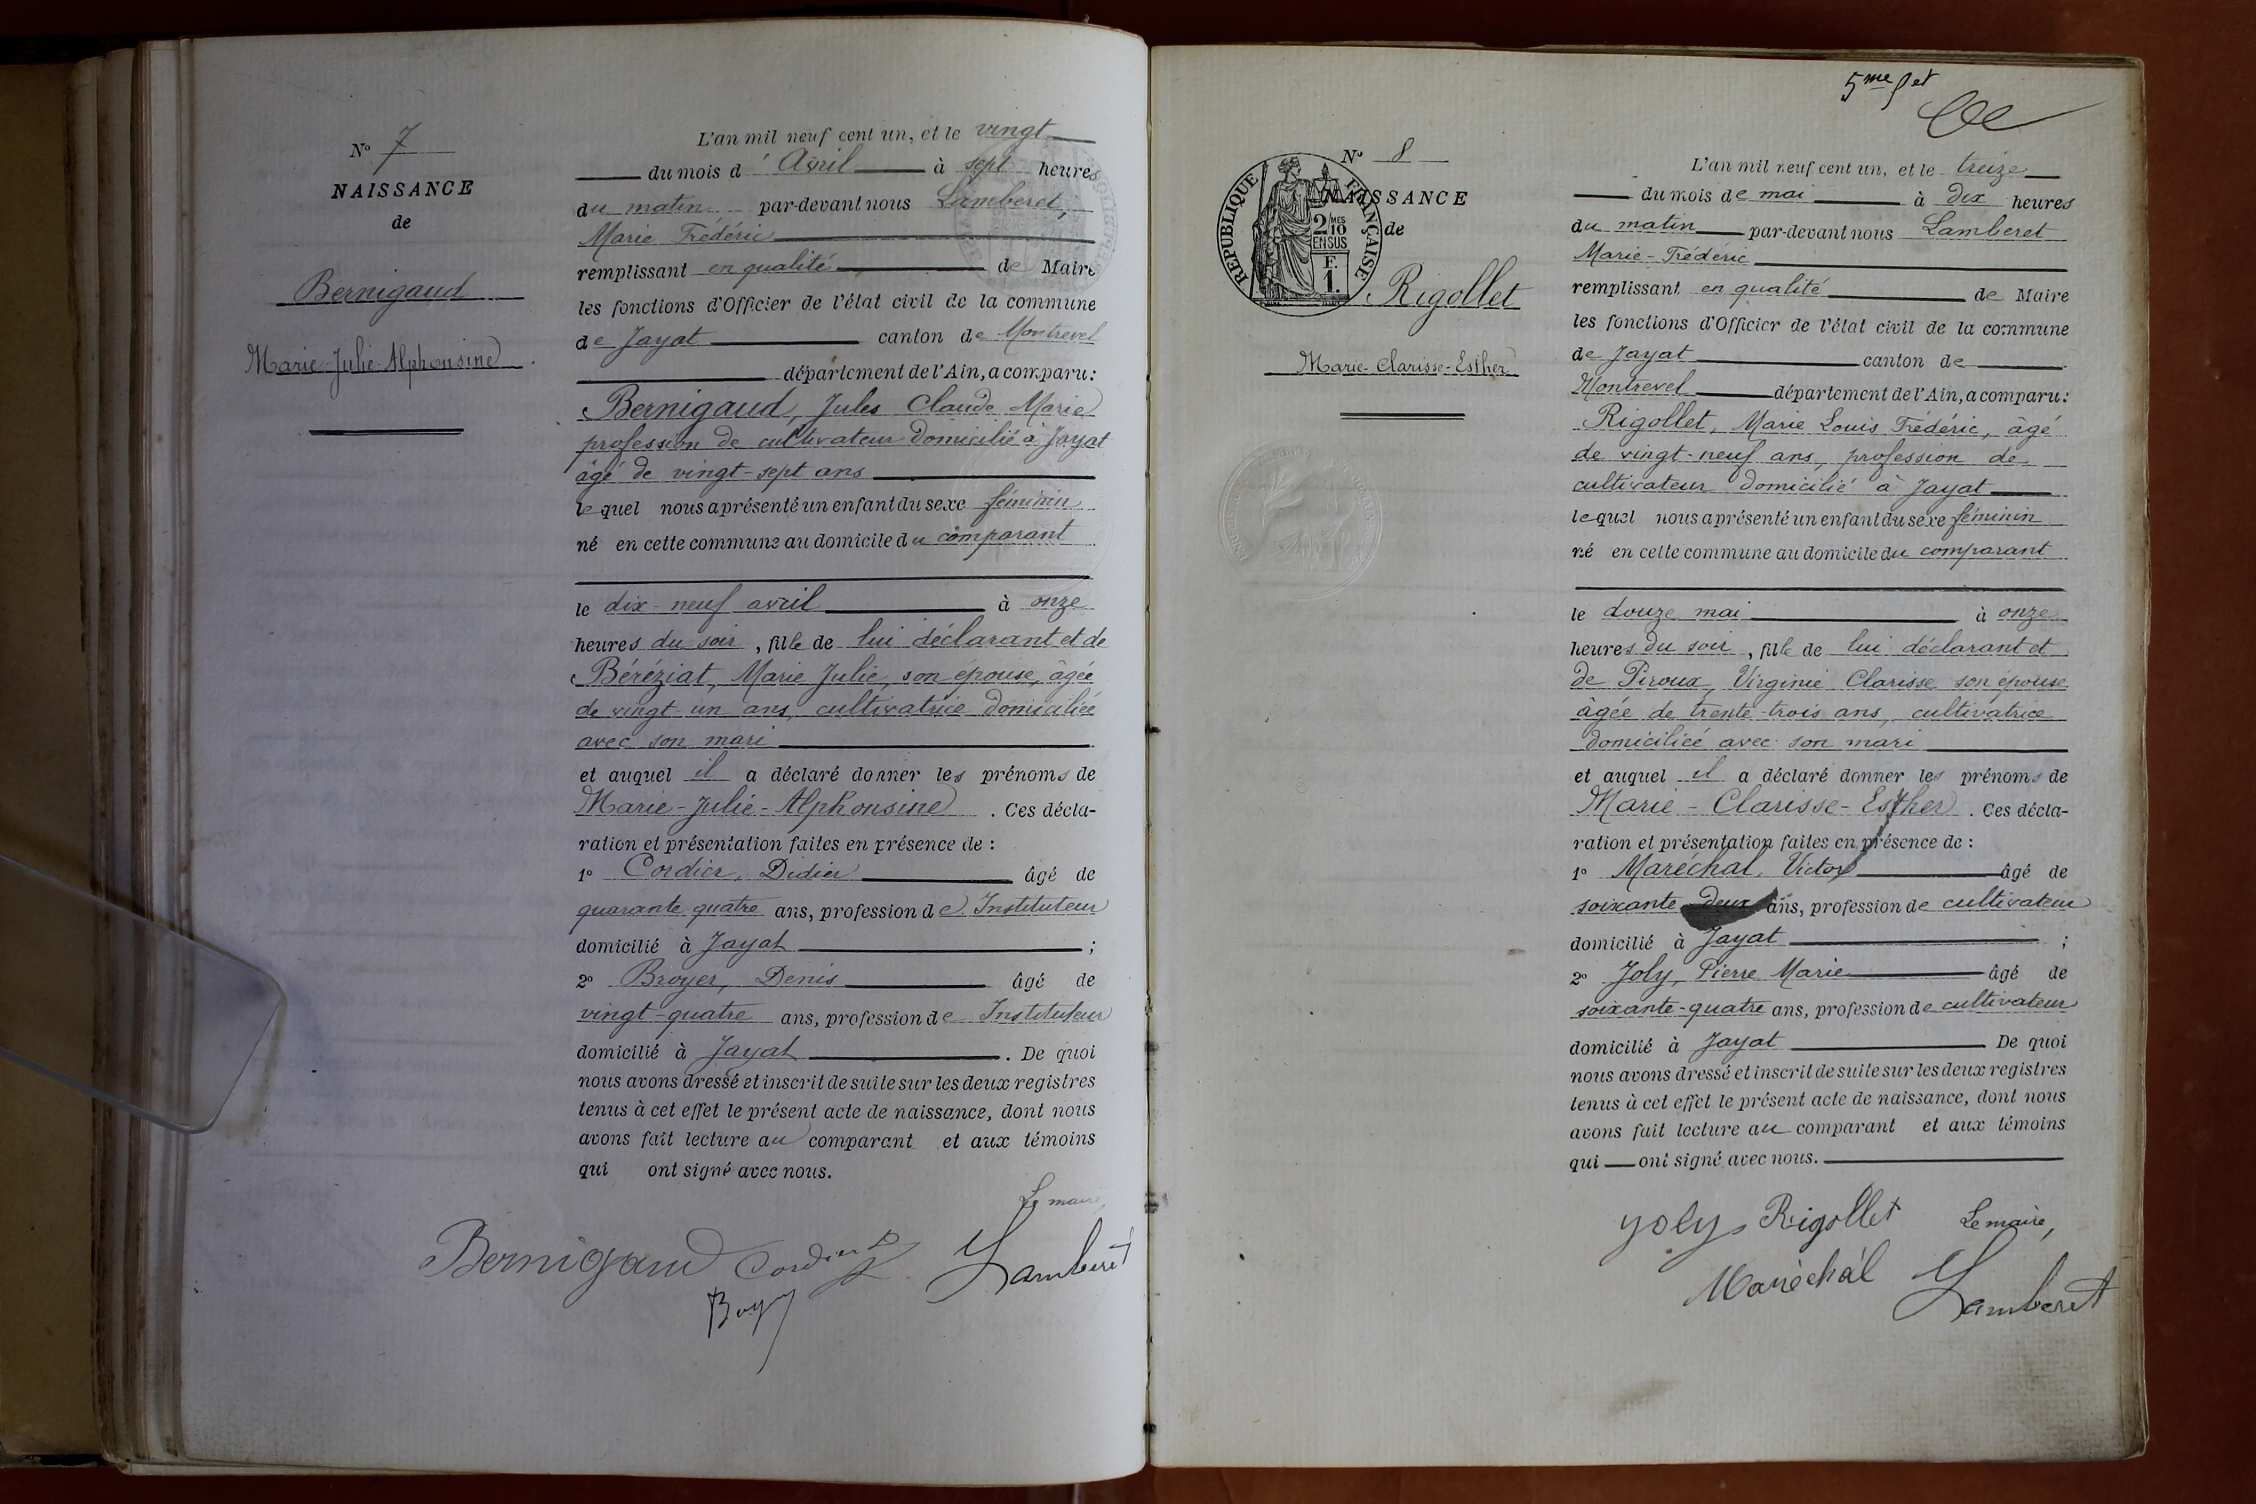 N° 7
NAISSANCE
de
Bernigaud
Marie-Julie-Alphonsine
L'an mil neuf cent un, et le vingt
du mois d'Avril à sept heures
du matin par-devant nous Lamberet,
Marie Frédéric
remplissant en qualité de Maire
les fonctions d'Officier de l'état civil de la commune
de Jayat canton de Montrevel
département de l'Ain, a comparu:
Bernigaud, Jules Claude Marie
profession de cultivateur domicilié à Jayat
âgé de vingt-sept ans
lequel nous a présenté un enfant du sexe féminin
né en cette commune au domicile du comparant
le dix-neuf avril à onze
heures du soir, fille de lui déclarant et de
Béréziat, Marie Julie, son épouse, âgée
de vingt un ans, cultivatrice domiciliée
avec son mari
et auquel il a déclaré donner les prénoms de
Marie-Julie-Alphonsine. Ces décla-
ration et présentation faites en présence de :
1° Cordier, Didier âgé de
quarante quatre ans, profession de Instituteur
domicilié à Jayat ;
2° Broyer, Denis âgé de
vingt-quatre ans, profession de Instituteur
domicilié à Jayat. De quoi
nous avons dressé et inscrit de suite sur les deux registres
tenus à cet effet le présent acte de naissance, dont nous
avons fait lecture au comparant et aux témoins
qui ont signé avec nous.
Le maire,
Bernigaud Cordier D Lamberet
Boyer
5me fet
N° 8
NAISSANCE
de
RÉPUBLIQUE FRANÇAISE
2 MES 10 EN SUS
F. 1.
Rigollet
Marie-Clarisse-Esther
L'an mil neuf cent un, et le treize
du mois de mai à dix heures
du matin par-devant nous Lamberet
Marie-Frédéric
remplissant en qualité de Maire
les fonctions d'Officier de l'état civil de la commune
de Jayat canton de
Montrevel département de l'Ain, a comparu:
Rigollet, Marie Louis Frédéric, âgé
de vingt-neuf ans, profession de
cultivateur domicilié à Jayat
lequel nous a présenté un enfant du sexe féminin
né en cette commune au domicile du comparant
le douze mai à onze
heures du soir, fille de lui déclarant et
de Piroux, Virginie Clarisse son épouse
âgée de trente-trois ans, cultivatrice
domiciliée avec son mari
et auquel il a déclaré donner les prénoms de
Marie-Clarisse-Esther. Ces décla-
ration et présentation faites en présence de :
1° Maréchal, Victor âgé de
soixante deux ans, profession de cultivateur
domicilié à Jayat ;
2° Joly, Pierre Marie âgé de
soixante-quatre ans, profession de cultivateur
domicilié à Jayat De quoi
nous avons dressé et inscrit de suite sur les deux registres
tenus à cet effet le présent acte de naissance, dont nous
avons fait lecture au comparant et aux témoins
qui ont signé avec nous.
Joly Rigollet Le maire,
Maréchal Lamberet